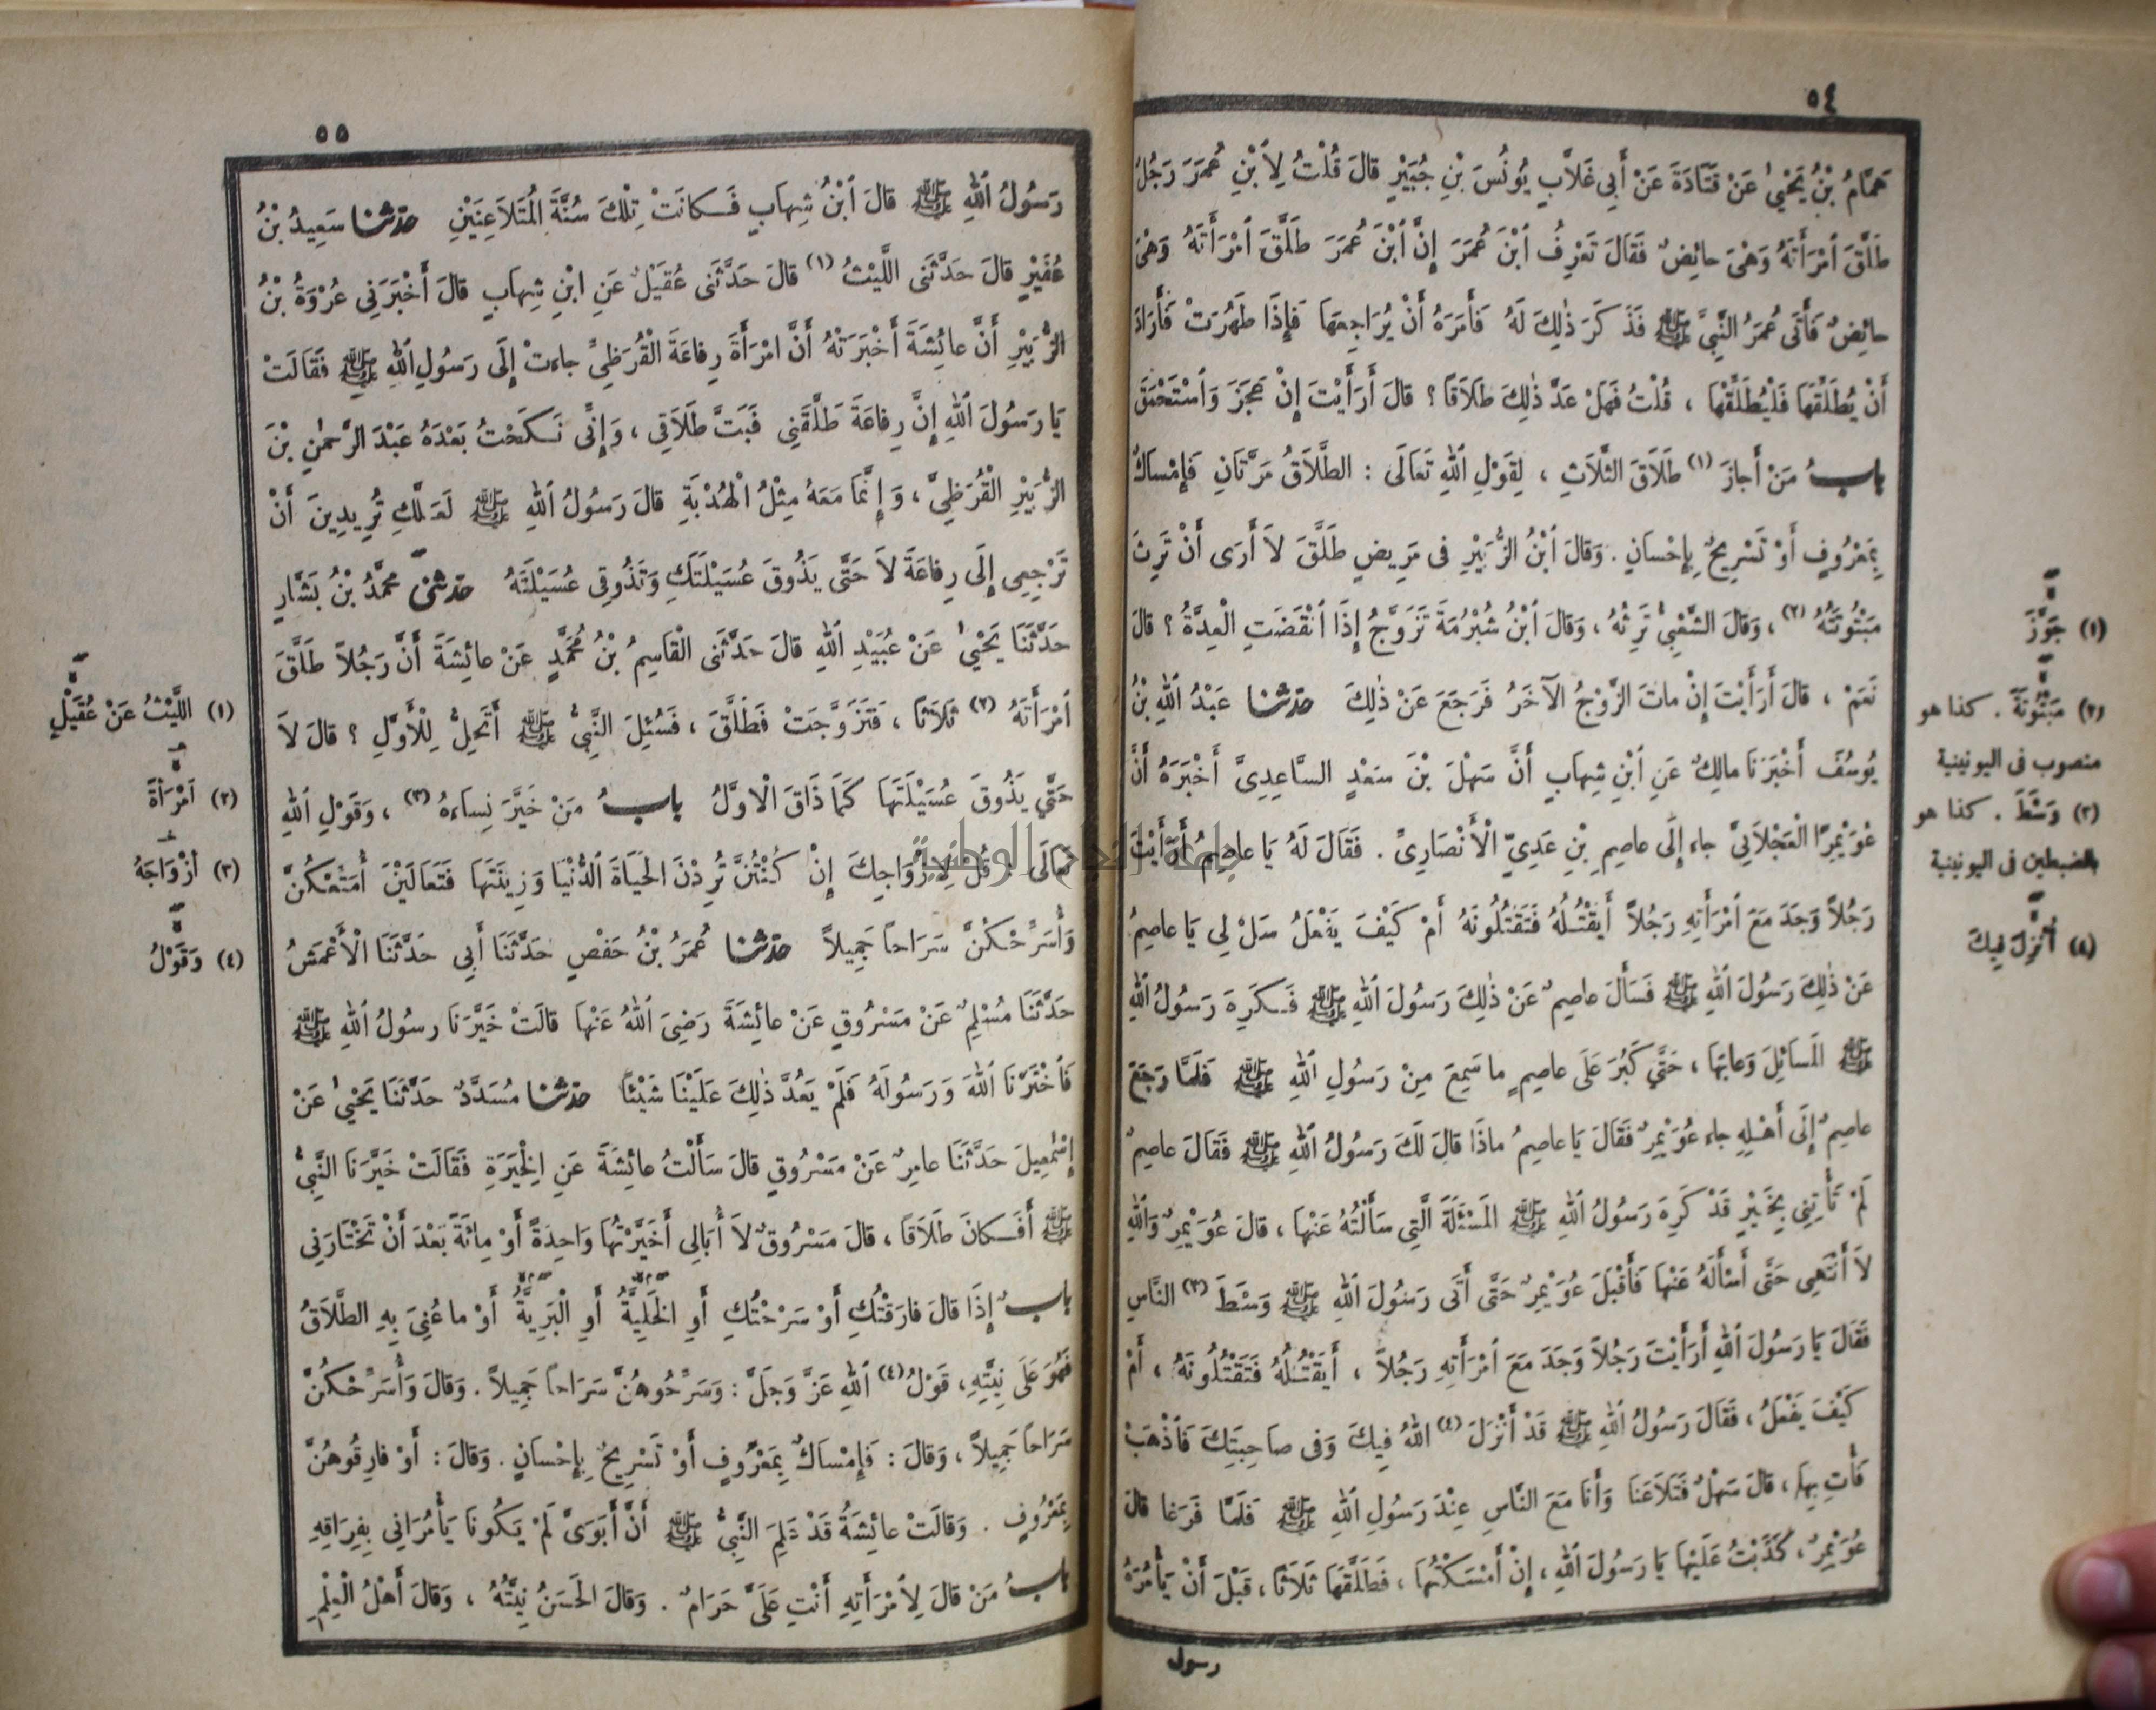 ٥٤
هَمَّامُ بْنُ يَحْيىٰ عَنْ قَتَادَةَ عَنْ أَبِي غَلَّابٍ يُونُسَ بْنِ جُبَيْرٍ قالَ قُلْتُ لِاَبْنِ عُمَرَ رَجُلٌ
طَلَّقَ اَمْرَأَتَهُ وَهْىَ حائِضٌ فَقَالَ تَعْرِفُ اَبْنَ عُمَرَ إِنَّ اَبْنَ عُمَرَ طَلَّقَ اَمْرَأَتَهُ وَهْىَ
حائِضٌ فَأَتَى عُمَرُ النَّبِيَّ ﷺ فَذَكَرَ ذٰلِكَ لَهُ فَأَمَرَهُ أَنْ يُرَاجِعَهَا فَإِذَا طَهُرَتْ فَأَرَادَ
أَنْ يُطَلِّقَهَا فَلْيُطَلِّقْهَا ، قُلْتُ فَهَلْ عَدَّ ذٰلِكَ طَلَاقًا ؟ قالَ أَرَأَيْتَ إِنْ عَجَزَ وَاَسْتَحْمَقَ
بابُ مَنْ أَجازَ (١) طَلَاقَ الثَّلَاثِ ، لِقَوْلِ اللهِ تَعَالَى : الطَّلَاقُ مَرَّتَانِ فَإِمْسَاكٌ
بِمَعْرُوفٍ أَوْ تَسْرِيحٌ بِإِحْسَانٍ . وَقالَ اَبْنُ الزُّبَيْرِ فى مَرِيضٍ طَلَّقَ لاَ أَرَى أَنْ تَرِثَ
مَبْتُوتَتُهُ (٢) ، وَقالَ الشَّعْبِيُّ تَرِثُهُ ، وَقالَ اَبْنُ شُبْرُمَةَ تَزَوَّجُ إِذَا اَنْقَضَتِ الْعِدَّةُ ؟ قالَ
نَعَمْ ، قالَ أَرَأَيْتَ إِنْ ماتَ الزَّوْجُ الآخَرُ فَرَجَعَ عَنْ ذٰلِكَ حدثنا عَبْدُ اللهِ بْنُ
يُوسُفَ أَخْبَرَنَا مالِكٌ عَنِ اَبْنِ شِهابٍ أَنَّ سَهْلَ بْنَ سَعْدٍ السَّاعِدِىَّ أَخْبَرَهُ أَنَّ
عُوَيْمِرًا الْعَجْلاَنِيَّ جاء إِلَى عاصِمِ بْنِ عَدِيٍّ الْأَنْصَارِىِّ . فَقَالَ لَهُ يَا عاصِمُ أَرَأَيْتَ
رَجُلاً وَجَدَ مَعَ اَمْرَأَتِهِ رَجُلاً أَيَقْتُلُهُ فَتَقْتُلُونَهُ أَمْ كَيْفَ يَفْعَلُ سَلْ لِي يَا عاصِمُ
عَنْ ذٰلِكَ رَسُولَ اللهِ ﷺ فَسَأَلَ عاصِمٌ عَنْ ذٰلِكَ رَسُولَ اللهِ ﷺ فَكَرِهَ رَسُولُ اللهِ
ﷺ الْمَسَائِلَ وَعابَهَا ، حَتَّى كَبُرَ عَلَى عاصِمٍ ما سَمِعَ مِنْ رَسُولِ اللهِ ﷺ فَلَمَّا رَجَعَ
عاصِمٌ إِلَى أَهْلِهِ جاء عُوَيْمِرٌ فَقَالَ يَا عاصِمُ ماذَا قالَ لَكَ رَسُولُ اللهِ ﷺ فَقَالَ عاصِمٌ
لَمْ تَأْتِنِي بِخَيْرٍ قَدْ كَرِهَ رَسُولُ اللهِ ﷺ الْمَسْئَلَةَ الَّتِي سَأَلْتُهُ عَنْهَا ، قالَ عُوَيْمِرٌ وَاللهِ
لاَ أَنْتَهِي حَتَّى أَسْأَلَهُ عَنْهَا فَأَقْبَلَ عُوَيْمِرٌ حَتَّى أَتَى رَسُولَ اللهِ ﷺ وَسْطَ (٣) النَّاسِ
فَقَالَ يَا رَسُولَ اللهِ أَرَأَيْتَ رَجُلاً وَجَدَ مَعَ اَمْرَأَتِهِ رَجُلاً ، أَيَقْتُلُهُ فَتَقْتُلُونَهُ ، أَمْ
كَيْفَ يَفْعَلُ ، فَقَالَ رَسُولُ اللهِ ﷺ قَدْ أَنْزَلَ (٤) اللهُ فِيكَ وَفى صاحِبَتِكَ فَاَذْهَبْ
فَأْتِ بِهَا ، قالَ سَهْلٌ فَتَلَاعَنَا وَأَنَا مَعَ النَّاسِ عِنْدَ رَسُولِ اللهِ ﷺ فَلَمَّا فَرَغا قالَ
عُوَيْمِرٌ ، كَذَبْتُ عَلَيْهَا يَا رَسُولَ اللهِ ، إِنْ أَمْسَكْتُهَا ، فَطَلَّقَهَا ثَلَاثًا ، قَبْلَ أَنْ يَأْمُرَهُ
رسول
(١) جَوَّزَ
(٢) مَبْتُوتَةً . كذا هو
منصوب فى اليونينية
(٣) وَسَْطَ . كذا هو
بالضبطين فى اليونينية
(٤) أُنْزِلَ فِيكَ
٥٥
رَسُولُ اللهِ ﷺ قالَ اَبْنُ شِهابٍ فَكانَتْ تِلْكَ سُنَّةَ الْمُتَلاَعِنَيْنِ حدثنا سَعِيدُ بْنُ
عُفَيْرٍ قالَ حَدَّثَنى اللَّيْثُ (١) قالَ حَدَّثَنى عُقَيْلٌ عَنِ ابْنِ شِهابٍ قالَ أَخْبَرَنِي عُرْوَةُ بْنُ
الزُّبَيْرِ أَنَّ عائِشَةَ أَخْبَرَتْهُ أَنَّ امْرَأَةَ رِفاعَةَ الْقُرَظِيِّ جاءتْ إِلَى رَسُولِ اللهِ ﷺ فَقَالَتْ
يَا رَسُولَ اللهِ إِنَّ رِفاعَةَ طَلَّقَنِي فَبَتَّ طَلَاقِي ، وَإِنِّى نَكَحْتُ بَعْدَهُ عَبْدَ الرَّحْمٰنِ بْنَ
الزُّبَيْرِ الْقُرَظِيَّ ، وَإِنَّمَا مَعَهُ مِثْلُ الْهُدْبَةِ قالَ رَسُولُ اللهِ ﷺ لَعَلَّكِ تُرِيدِينَ أَنْ
تَرْجِعِى إِلَى رِفاعَةَ لاَ حَتَّى يَذُوقَ عُسَيْلَتَكِ وَتَذُوقِى عُسَيْلَتَهُ حدثنى مُحَمَّدُ بْنُ بَشَّارٍ
حَدَّثَنَا يَحْيىٰ عَنْ عُبَيْدِ اللهِ قالَ حَدَّثَنى الْقَاسِمُ بْنُ مُحَمَّدٍ عَنْ عائِشَةَ أَنَّ رَجُلاً طَلَّقَ
اَمْرَأَتَهُ (٢) ثَلَاثًا ، فَتَزَوَّجَتْ فَطَلَّقَ ، فَسُئِلَ النَّبِيُّ ﷺ أَتَحِلُّ لِلْأَوَّلِ ؟ قالَ لاَ
حَتَّى يَذُوقَ عُسَيْلَتَهَا كَمَا ذَاقَ الْاوَّلُ بابُ مَنْ خَيَّرَ نِساءهُ (٣) ، وَقَوْلِ اللهِ
تَعَالَى : قُلْ لِأَزْوَاجِكَ إِنْ كُنْتُنَّ تُرِدْنَ الْحَيَاةَ الدُّنْيَا وَزِينَتَهَا فَتَعَالَيْنَ أُمَتِّعْكُنَّ
وَأُسَرِّحْكُنَّ سَرَاحاً جَمِيلاً حدثنا عُمَرُ بْنُ حَفْصٍ حَدَّثَنَا أَبِي حَدَّثَنَا الْأَعْمَشُ
حَدَّثَنَا مُسْلِمٌ عَنْ مَسْرُوقٍ عَنْ عائِشَةَ رَضِيَ اللهُ عَنْهَا قالَتْ خَيَّرَنَا رسُولُ اللهِ ﷺ
فَاَخْتَرْنَا اللهَ وَرَسُولَهُ فَلَمْ يَعُدَّ ذٰلِكَ عَلَيْنَا شَيْئًا حدثنا مُسَدَّدٌ حَدَّثَنَا يَحْيىٰ عَنْ
إِسْمٰعِيلَ حَدَّثَنَا عامِرٌ عَنْ مَسْرُوقٍ قالَ سَأَلْتُ عائِشَةَ عَنِ الْخِيَرَةِ فَقَالَتْ خَيَّرَنَا النَّبِيُّ
ﷺ أَفَكانَ طَلَاقًا ، قالَ مَسْرُوقٌ لاَ أُبَالِي أَخَيَّرْتُهَا وَاحِدَةً أَوْ مِائَةً بَعْدَ أَنْ تَخْتَارَنِي
بابٌ إِذَا قالَ فارَقْتُكِ أَوْ سَرَّحْتُكِ أَوِ الْخَلِيَّةُ أَوِ الْبَرِيَّةُ أَوْ ما عُنِيَ بِهِ الطَّلَاقُ
فَهُوَ عَلَى نِيَّتِهِ ، قَوْلُ (٤) اللهِ عَزَّ وَجَلَّ : وَسَرِّحُوهُنَّ سَرَاحاً جَمِيلاً . وَقالَ وَأُسَرِّحْكُنَّ
سَرَاحاً جَمِيلاً ، وَقالَ : فَإِمْسَاكٌ بِمَعْرُوفٍ أَوْ تَسْرِيحٌ بِإِحْسَانٍ . وَقالَ : أَوْ فارِقُوهُنَّ
بِمَعْرُوفٍ . وَقالَتْ عائِشَةُ قَدْ عَلِمَ النَّبِيُّ ﷺ أَنَّ أَبَوَىَّ لَمْ يَكُونا يَأْمُرَانِي بِفِرَاقِهِ
بابُ مَنْ قالَ لِاَمْرَأَتِهِ أَنْتِ عَلَىَّ حَرَامٌ . وَقالَ الْحَسَنُ نِيَّتُهُ ، وَقالَ أَهْلُ الْعِلْمِ
(١) اللَّيْثُ عَنْ عُقَيْلٍ
(٢) اَمْرَأَةً
(٣) أَزْوَاجَهُ
(٤) وَقَوْلُ
جامعة النجاح الوطنية